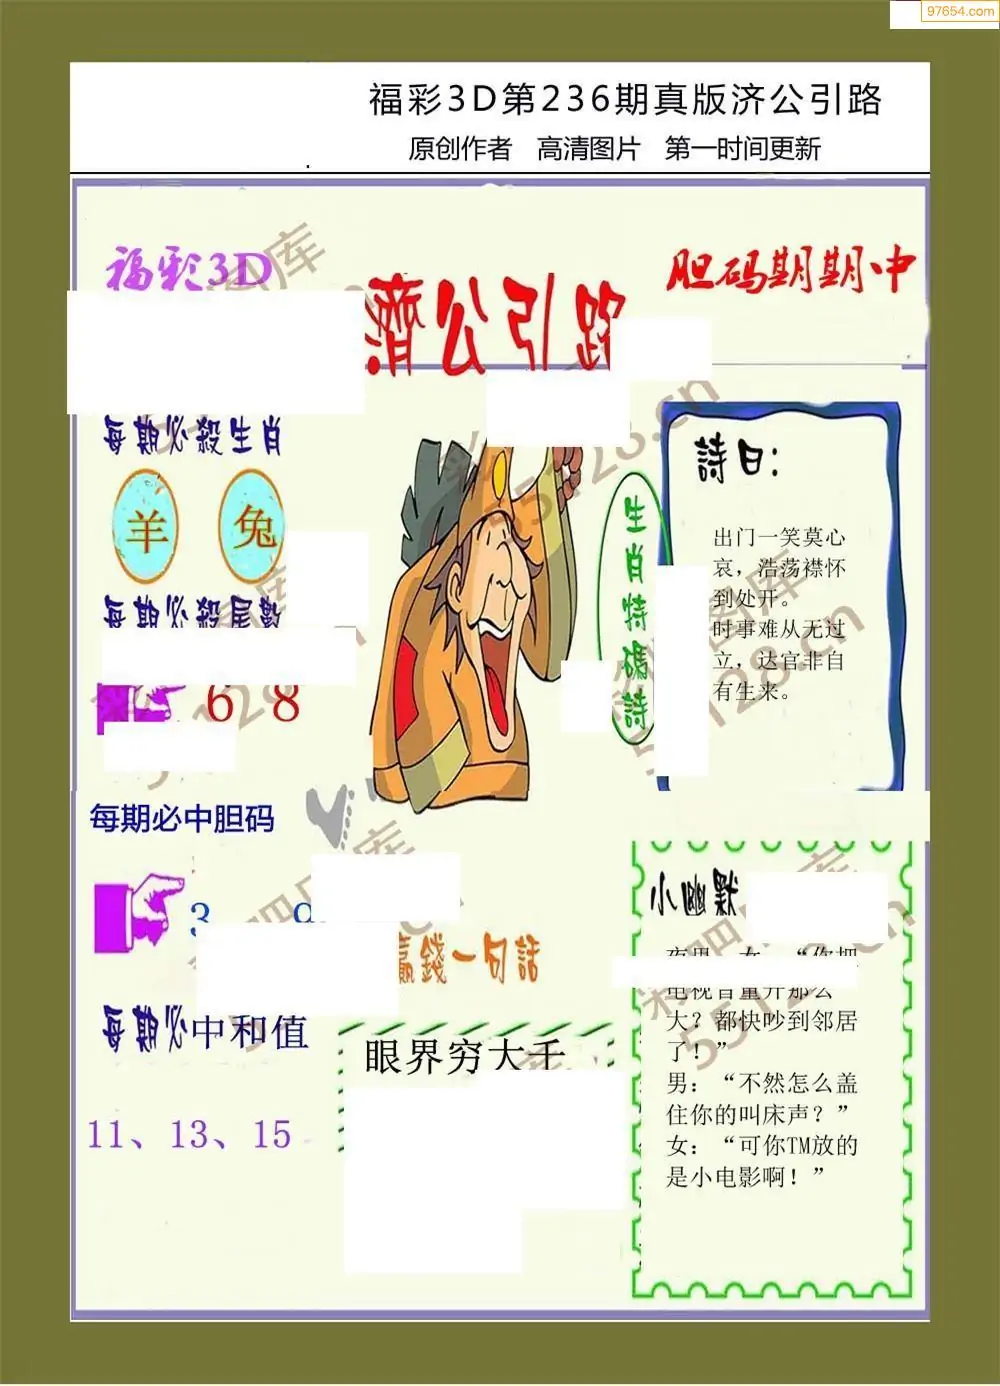 97654.com
福彩3D第236期真版济公引路
原创作者 高清图片 第一时间更新
福彩3D
胆码期期中
濟公引路
每期必殺生肖
羊 兔
每期必殺尾數
6 8
每期必中胆码
3
每期必中和值
11、13、15
生肖特碼詩
詩曰：
出门一笑莫心
哀，浩荡襟怀
到处开。
时事难从无过
立，达官非自
有生来。
贏錢一句話
眼界穷大手
小幽默
电视音量开那么
大？都快吵到邻居
了！”
男：“不然怎么盖
住你的叫床声？”
女：“可你TM放的
是小电影啊！”
55128.cn
55128.cn
55128.cn